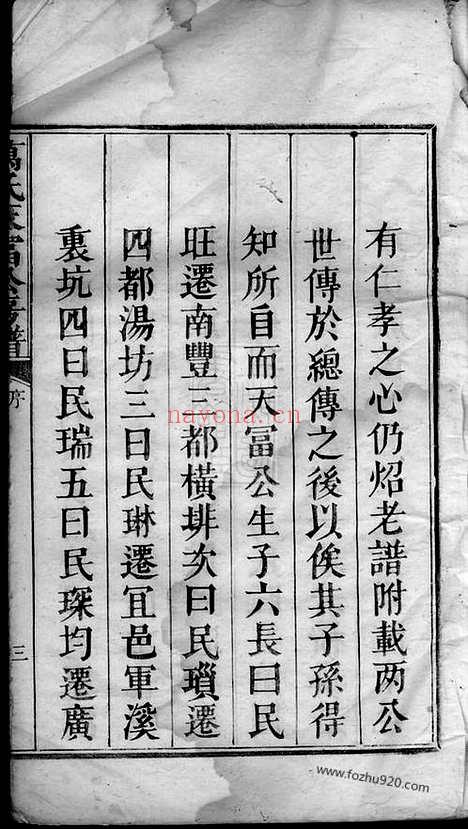 有仁孝之心仍炤老譜附載两公
世傳於總傳之後以俟其子孫得
知所自而天冨公生子六長曰民
旺遷南豐三都橫排次曰民瑣遷
四都湯坊三曰民琳遷冝邑軍溪
裏坑四曰民瑞五曰民琛均遷廣
萬氏天富公房譜
序
三
nayona.cn
www.fozhu920.com